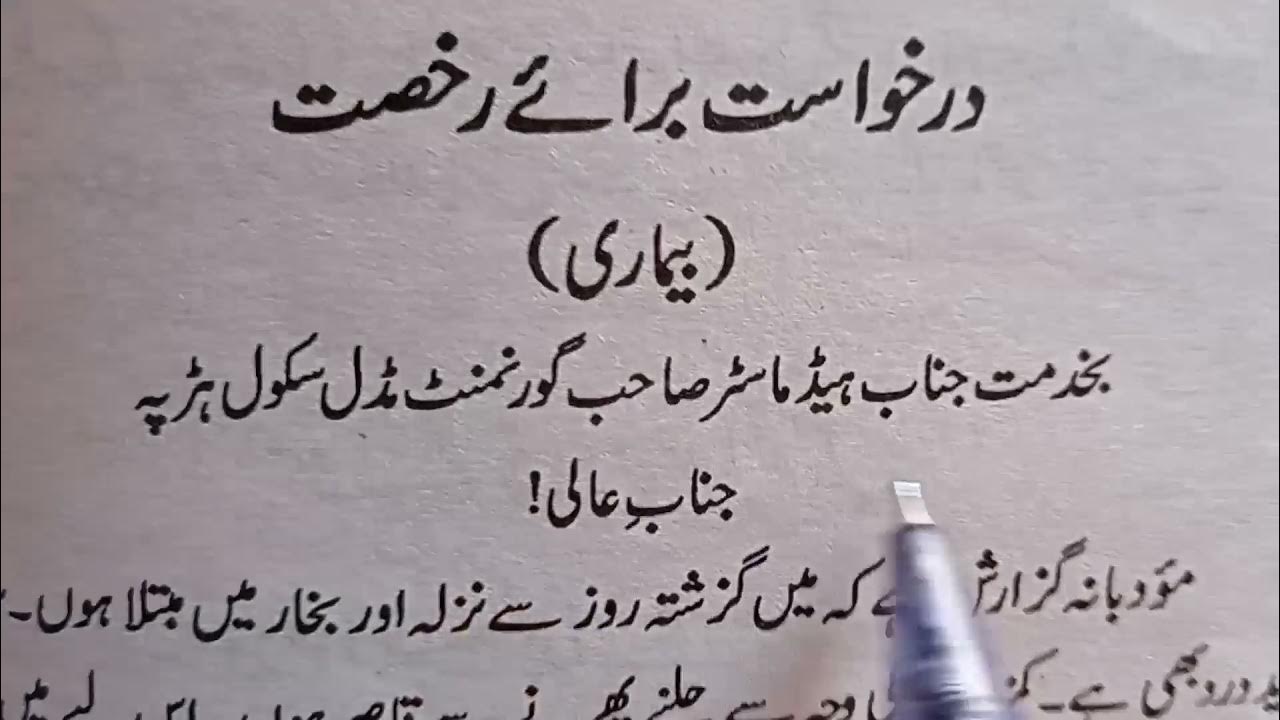 درخواست برائے رخصت
(بیماری)
بخدمت جناب ہیڈ ماسٹر صاحب گورنمنٹ مڈل سکول ہڑپہ
جنابِ عالی!
مؤدبانہ گزارش ہے کہ میں گزشتہ روز سے نزلہ اور بخار میں مبتلا ہوں۔
درد بھی ہے۔ وجہ سے چلنے پھرنے سے قاصر ہوں۔ اس لیے میں